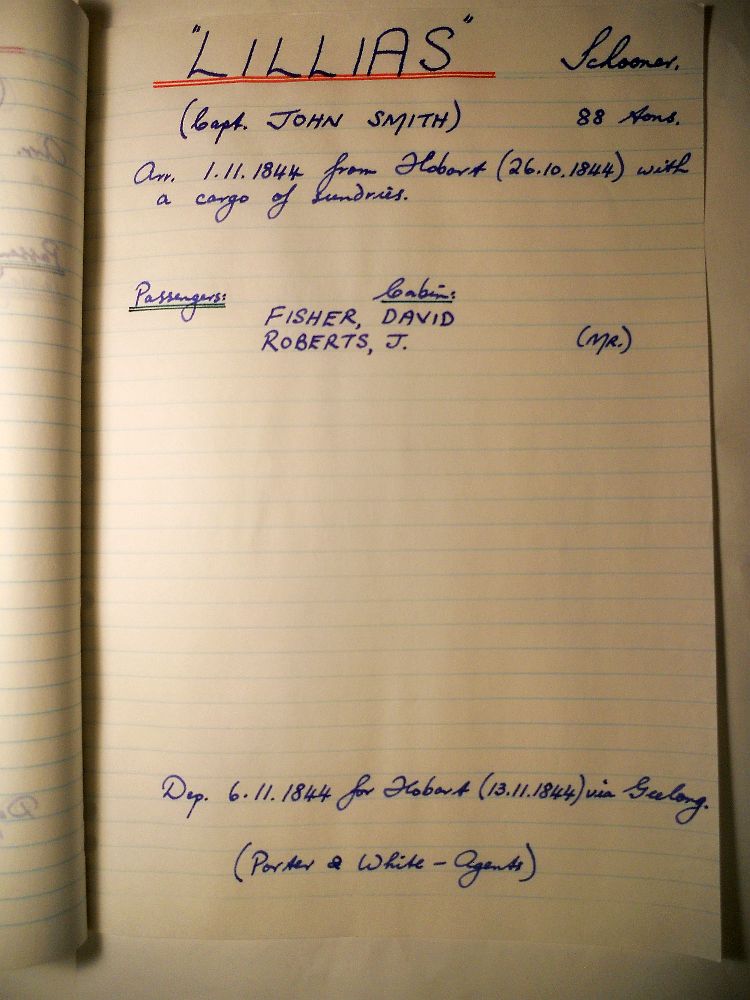 "LILLIAS" Schooner.
(Capt. JOHN SMITH) 88 tons.
Arr. 1.11.1844 from Hobart (26.10.1844) with
a cargo of sundries.
Passengers: Cabin:
FISHER, DAVID
ROBERTS, J. (MR.)
Dep. 6.11.1844 for Hobart (13.11.1844) via Geelong.
(Porter & White - Agents)